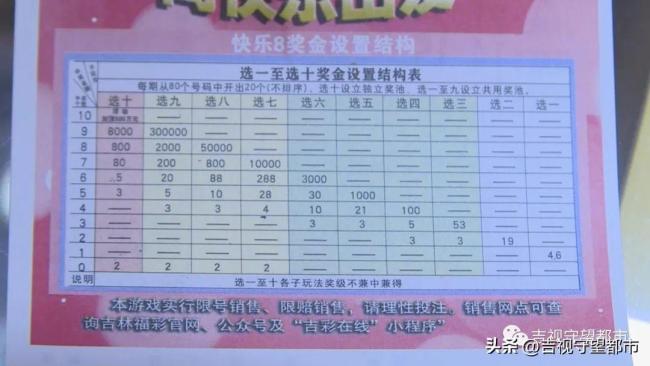 快乐8奖金设置结构
选一至选十奖金设置结构表
每期从80个号码中开出20个(不排序)。选十设立独立奖池、选一至九设立共用奖池。
选十 选九 选八 选七 选六 选五 选四 选三 选二 选一
10 —— —— —— —— —— —— —— —— ——
9 8000 300000 —— —— —— —— —— —— —— ——
8 800 2000 50000 —— —— —— —— —— —— ——
7 80 200 800 10000 —— —— —— —— —— ——
6 5 20 88 288 3000 —— —— —— —— ——
5 3 5 10 28 30 1000 —— —— —— ——
4 —— 3 3 4 10 21 100 —— —— ——
3 —— —— —— —— 3 3 5 53 —— ——
2 —— —— —— —— —— —— 3 3 19 ——
1 —— —— —— —— —— —— —— —— —— 4.6
0 2 2 2 2 —— —— —— —— —— ——
说明 选一至十各子玩法奖级不兼中兼得
本游戏实行限号销售、限赔销售，请理性投注。销售网点可查
询吉林福彩官网、公众号及“吉彩在线”小程序”
吉视守望都市
头条 @吉视守望都市